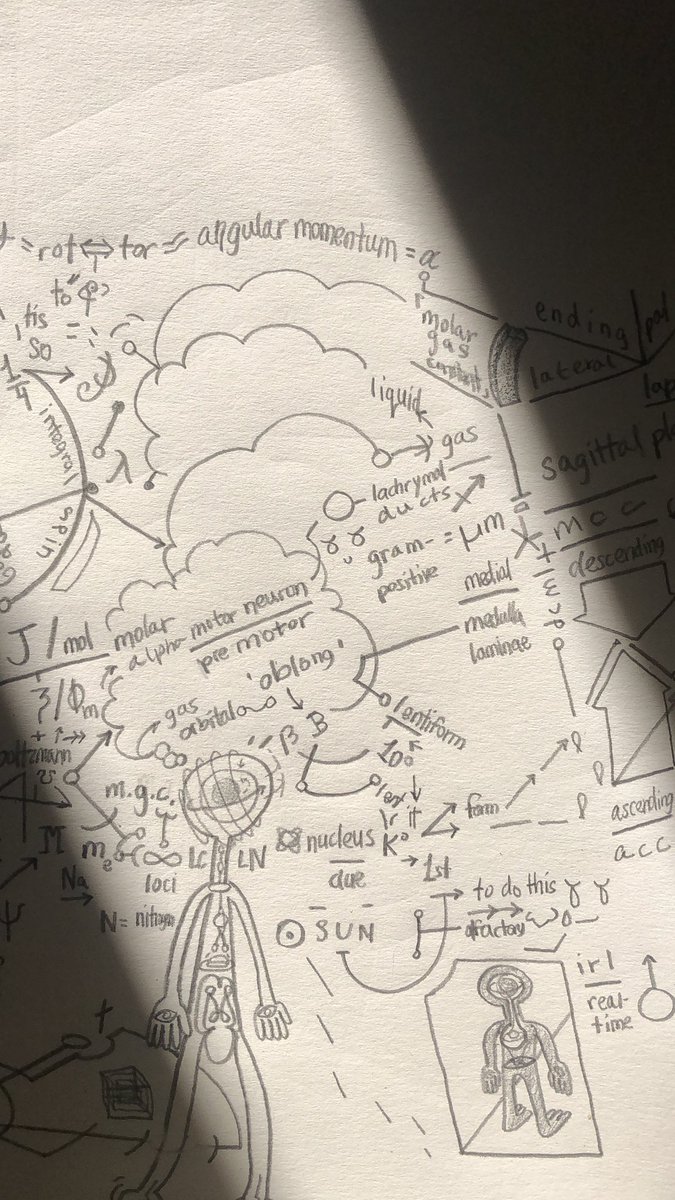 = rot ⇔ tor = angular momentum = α
to
tis =
so
1/4
integral
spin
λ
r
molar
gas
constant
ending
lateral
pal
lap
liquid
gas
lachrymal
ducts
γ γ
gram-
positive
= μm
sagittal pl
m c c
descending
medial
medulla
laminae
J/mol molar
alpha-motor neuron
pre motor
'oblong'
ξ/Φm
gas
orbital
β B
lentiform
boltzmann
m.g.c.
M
me
∞
LC LN
loci
Na
N = nitrogen
Ψ
nucleus
due
K°
→ 1st
form
ascending
acc
to do this γ γ
olfactory
SUN
irl
real-
time